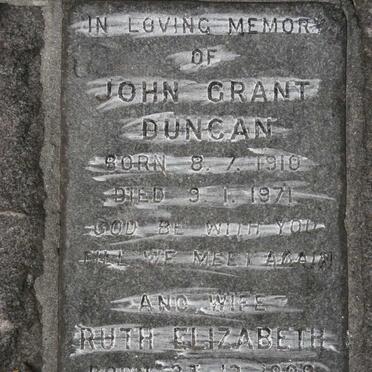 IN LOVING MEMORY
OF
JOHN GRANT
DUNCAN
BORN 8. 7. 1910
DIED 9. 1. 1971
GOD BE WITH YOU
TILL WE MEET AGAIN
AND WIFE
RUTH ELIZABETH
BORN 27. 12.